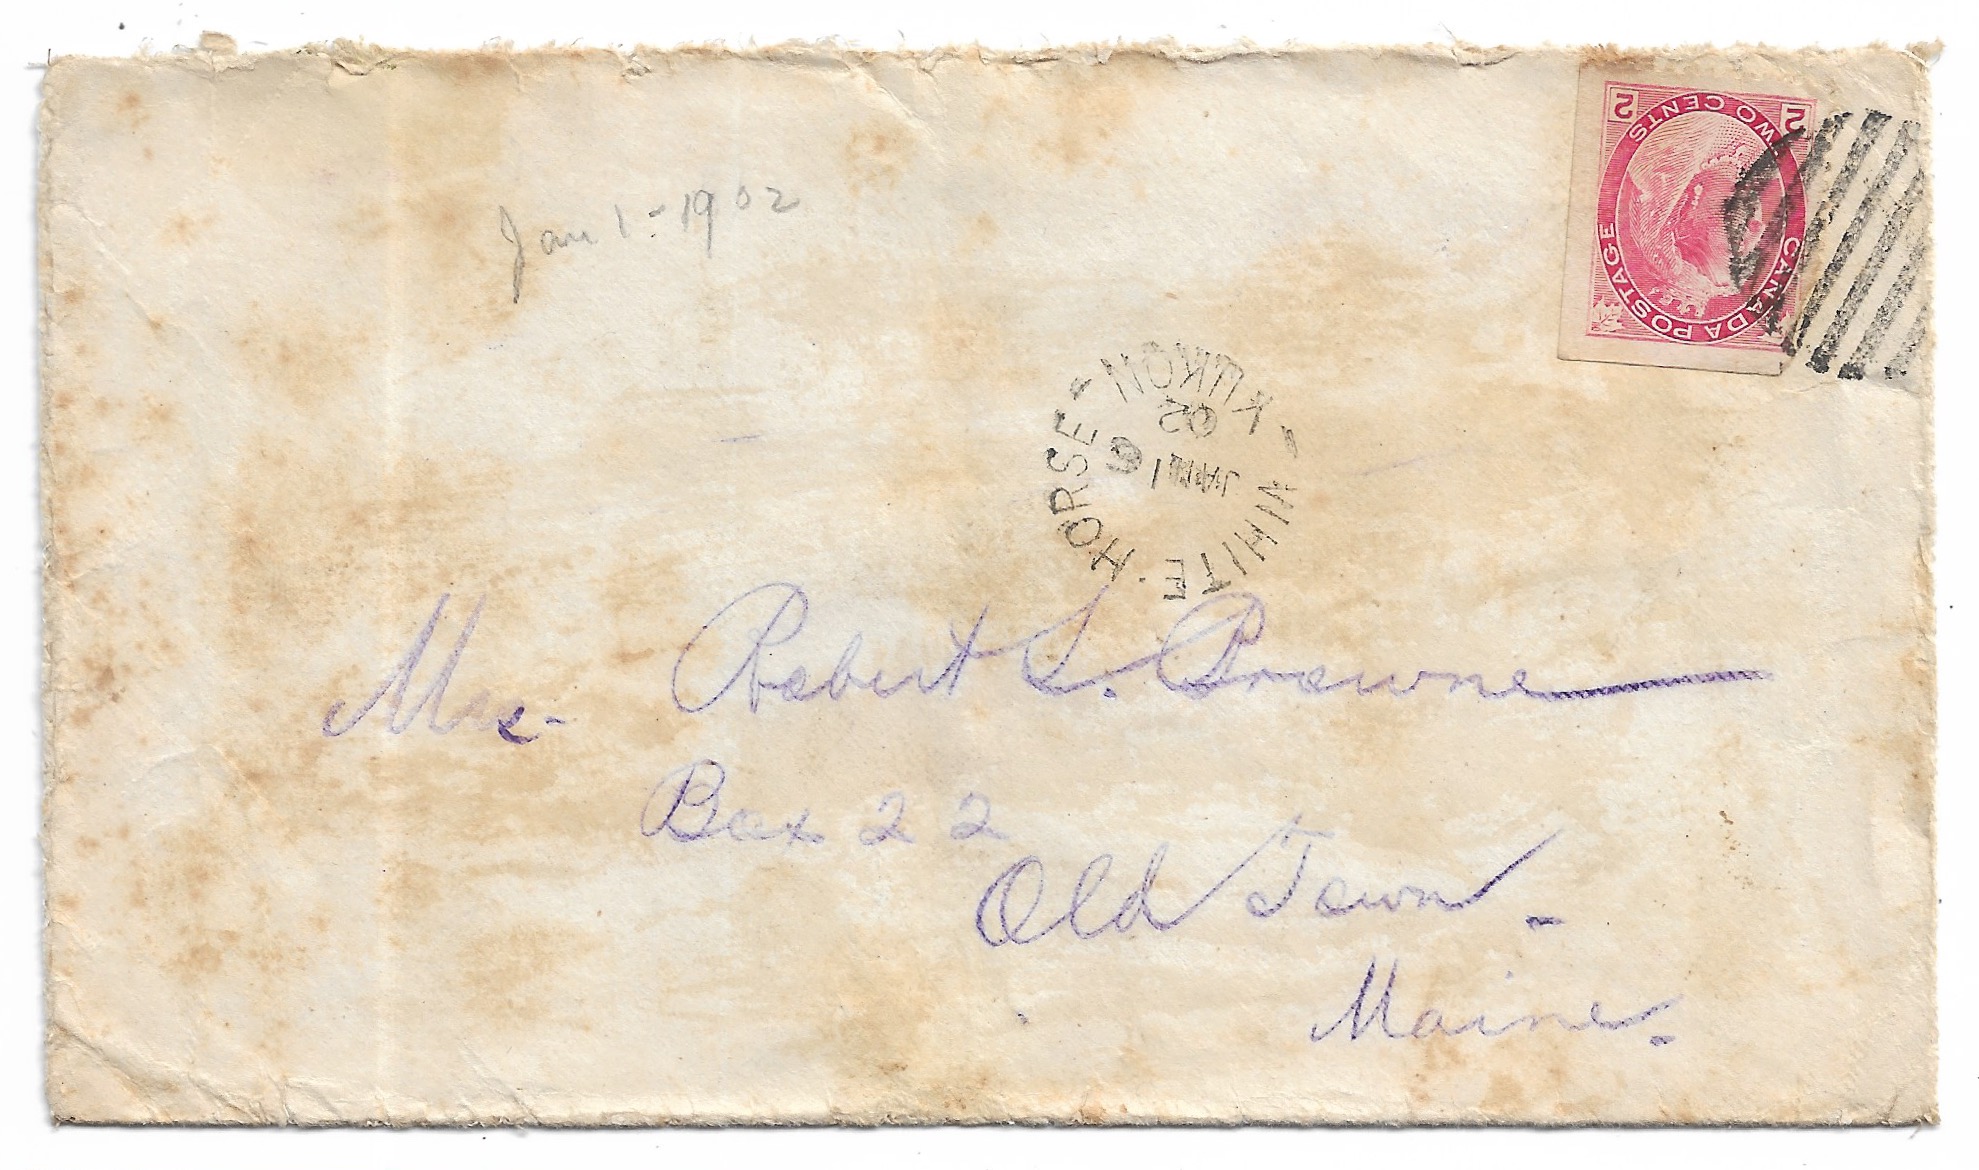 Jan 1 - 1902
2 TWO CENTS 2
CANADA POSTAGE
WHITE · HORSE
YUKON
JAN 1
02
Mrs. Robert L. Browne
Box 22
Old Town.
Maine.